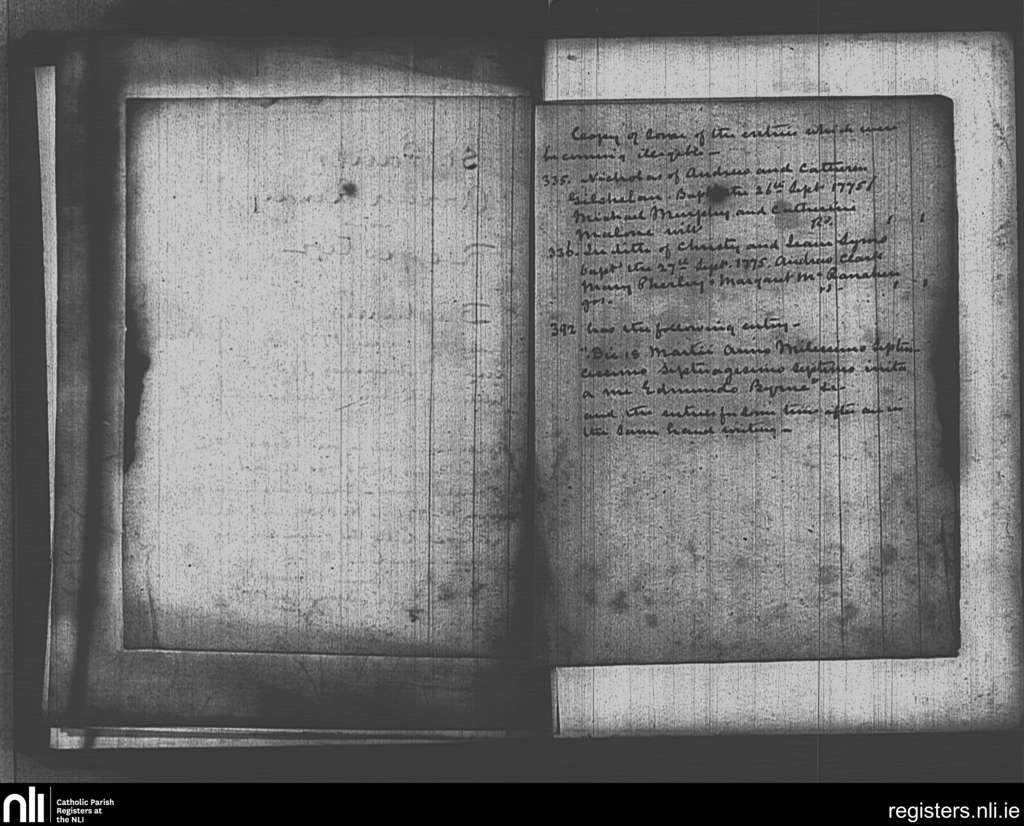 Copy of some of the entries which were
becoming illegible –
335. Nicholas of Andrew and Catherin
Gilshelan. Bapt the 26th Sept 1775/
Michael Murphy and Catherine
Malone
336. of Christy and
bapt the 27th Sept. 1775. Andrew Clark
Mary Margaret Mc
gos.
392 has the following entry –
"Die 18 Martii Anno Millessimo Septin-
cessimo Septuagesimo Septimo inita
a me Edmundo Byrne" &c
and the entries for some time after are in
the same hand writing –
nli
Catholic Parish
Registers at
the NLI
registers.nli.ie